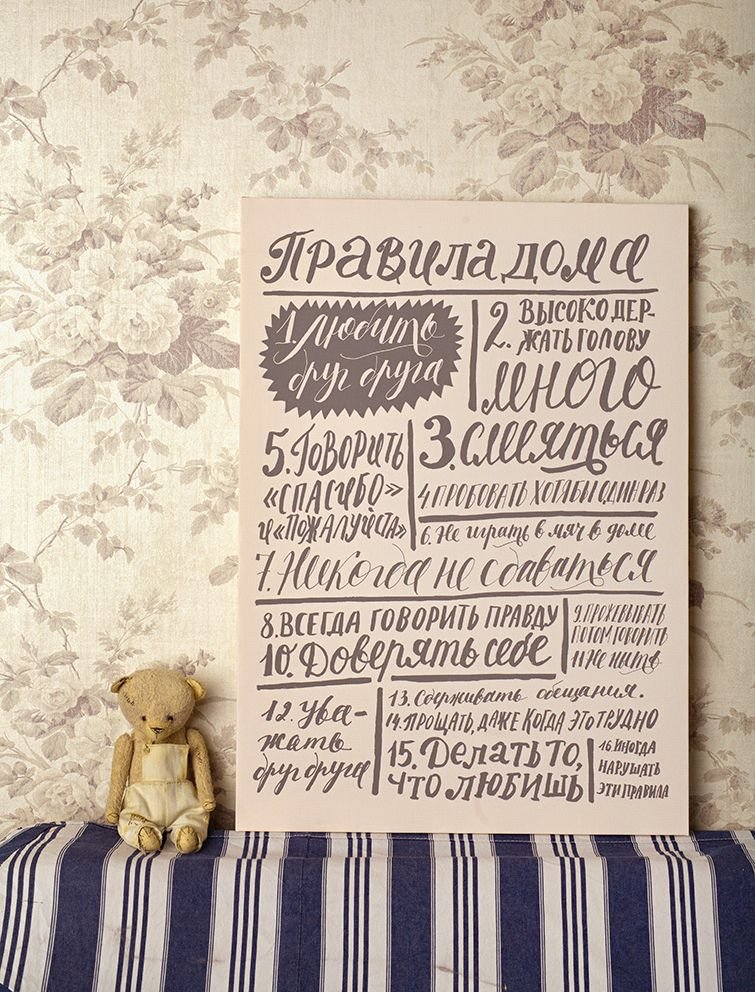 Правила дома
1 Любить
друг друга
2. ВЫСОКО ДЕР-
ЖАТЬ ГОЛОВУ
много
3. смеяться
4 ПРОБОВАТЬ ХОТЯ БЫ ОДИН РАЗ
5. Говорить
«СПАСИБО»
и «ПОЖАЛУЙСТА»
6. Не играть в мяч в доме
7. Никогда не сдаваться
8. ВСЕГДА ГОВОРИТЬ ПРАВДУ
9. ПРОЖЕВЫВАТЬ
ПОТОМ ГОВОРИТЬ
10. Доверять себе
11 Не ныть
12. Ува-
жать
друг друга
13. Сдерживать обещания.
14. ПРОЩАТЬ, ДАЖЕ КОГДА ЭТО ТРУДНО
15. Делать то,
ЧТО ЛЮБИШЬ
16. ИНОГДА
НАРУШАТЬ
ЭТИ ПРАВИЛА